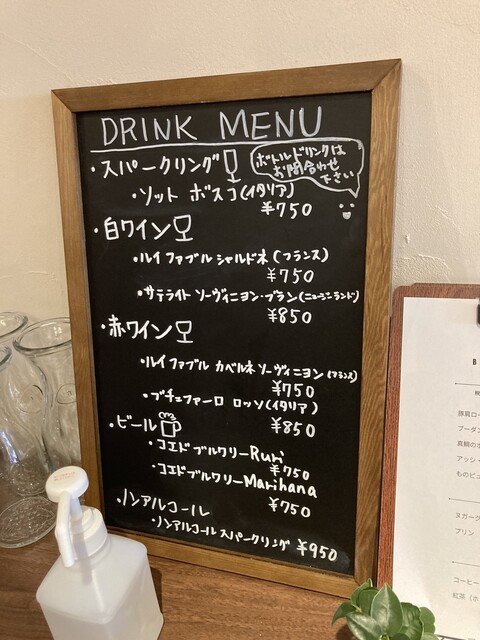 DRINK MENU
・スパークリング
ボトルドリンクは
お問合わせ
下さい
・ソット ボスコ(イタリア)
¥750
・白ワイン
・ルイ ファブル シャルドネ (フランス)
¥750
・サテライト ソーヴィニヨン・ブラン(ニュージーランド)
¥850
・赤ワイン
・ルイ ファブル カベルネ ソーヴィニヨン(フランス)
¥750
・プチェファーロ ロッソ(イタリア)
¥850
・ビール
・コエドブルワリーRuri
¥750
・コエドブルワリーMarihana
¥750
・ノンアルコール
・ノンアルコール スパークリング ¥950
B
豚肩ロー
ブーダン
真鯛のポ
アッシ・
ものピュ
ヌガーグ
プリン
コーヒー
紅茶(ホ